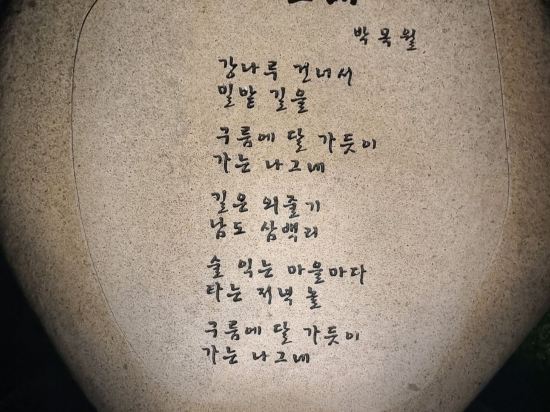 박목월
강나루 건너서
밀밭 길을
구름에 달 가듯이
가는 나그네
길은 외줄기
남도 삼백리
술 익는 마을마다
타는 저녁 놀
구름에 달 가듯이
가는 나그네